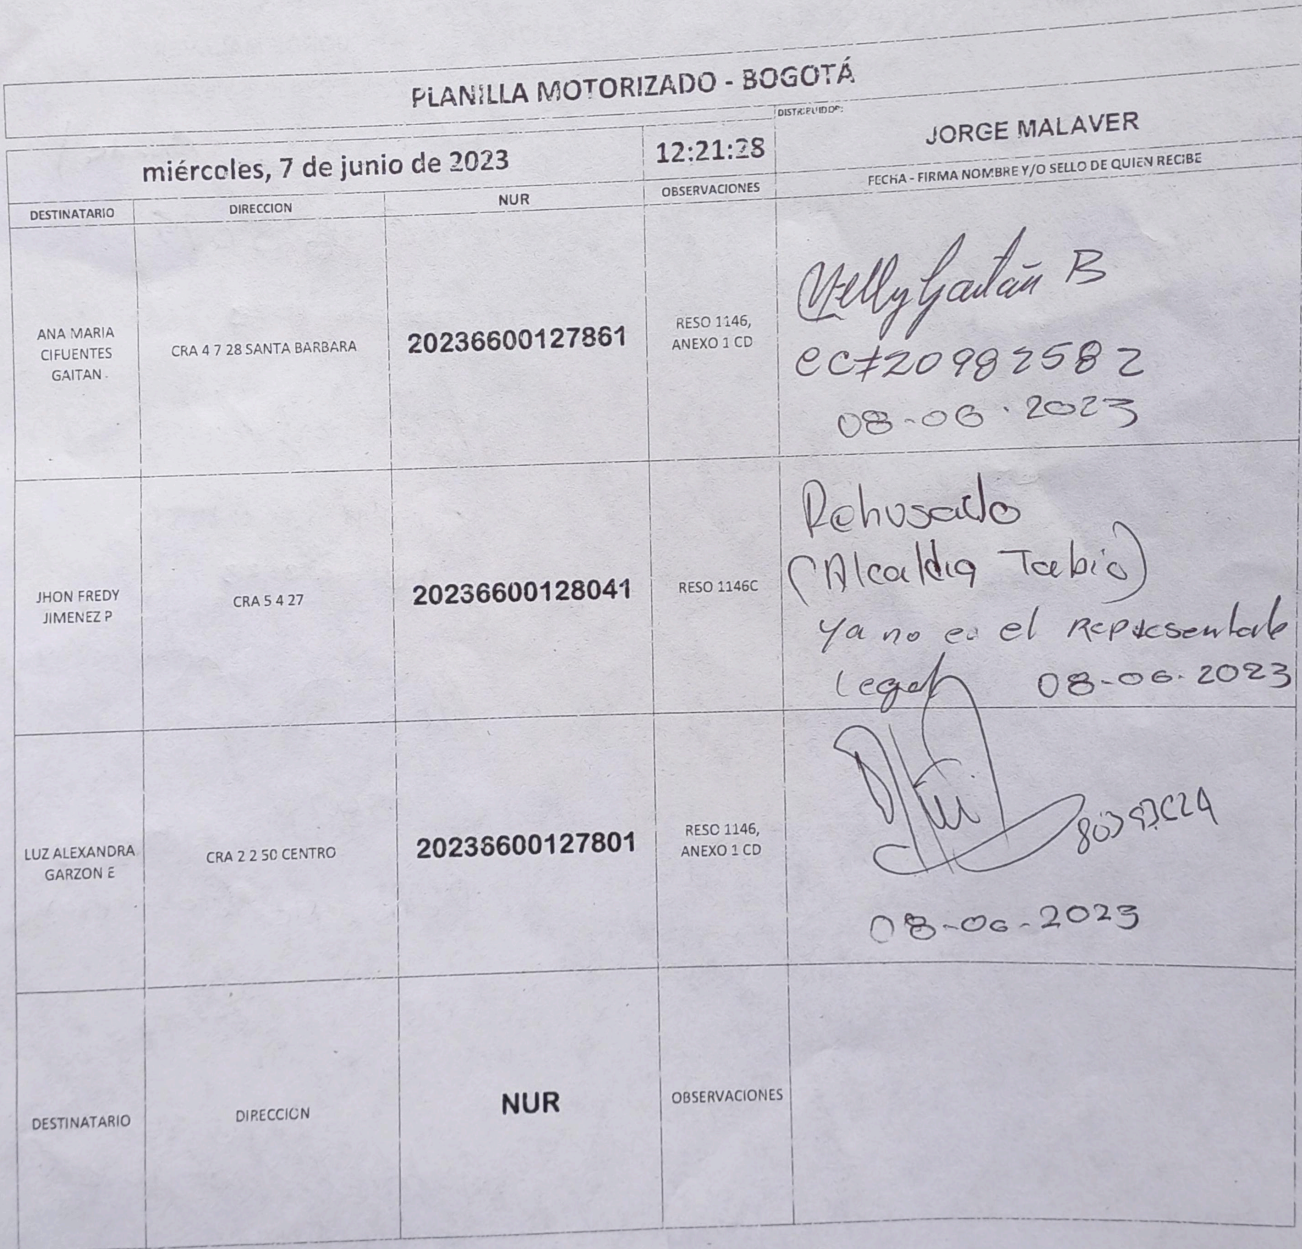 PLANILLA MOTORIZADO - BOGOTÁ
miércoles, 7 de junio de 2023
12:21:28
DISTRIBUIDOR:
JORGE MALAVER
DESTINATARIO
DIRECCION
NUR
OBSERVACIONES
FECHA - FIRMA NOMBRE Y/O SELLO DE QUIEN RECIBE
ANA MARIA
CIFUENTES
GAITAN
CRA 4 7 28 SANTA BARBARA
20236600127861
RESO 1146,
ANEXO 1 CD
Nelly Gaitán B
20982582
08-06-2023
JHON FREDY
JIMENEZ P
CRA 5 4 27
20236600128041
RESO 1146C
Rehusado
(Alcaldia Tabio)
ya no es el Representante
Legal 08-06-2023
LUZ ALEXANDRA
GARZON E
CRA 2 2 50 CENTRO
20236600127801
RESO 1146,
ANEXO 1 CD
08-06-2023
DESTINATARIO
DIRECCION
NUR
OBSERVACIONES